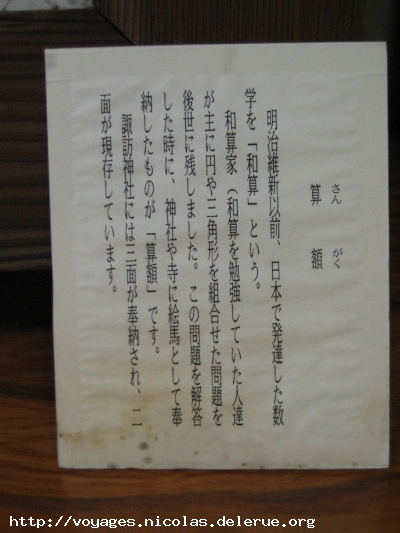 さん がく
算額
明治維新以前、日本で発達した数
学を「和算」という。
和算家（和算を勉強していた人達
が主に円や三角形を組合せた問題を
後世に残しました。この問題を解答
した時に、神社や寺に絵馬として奉
納したものが「算額」です。
諏訪神社には三面が奉納され、二
面が現存しています。
http://voyages.nicolas.delerue.org